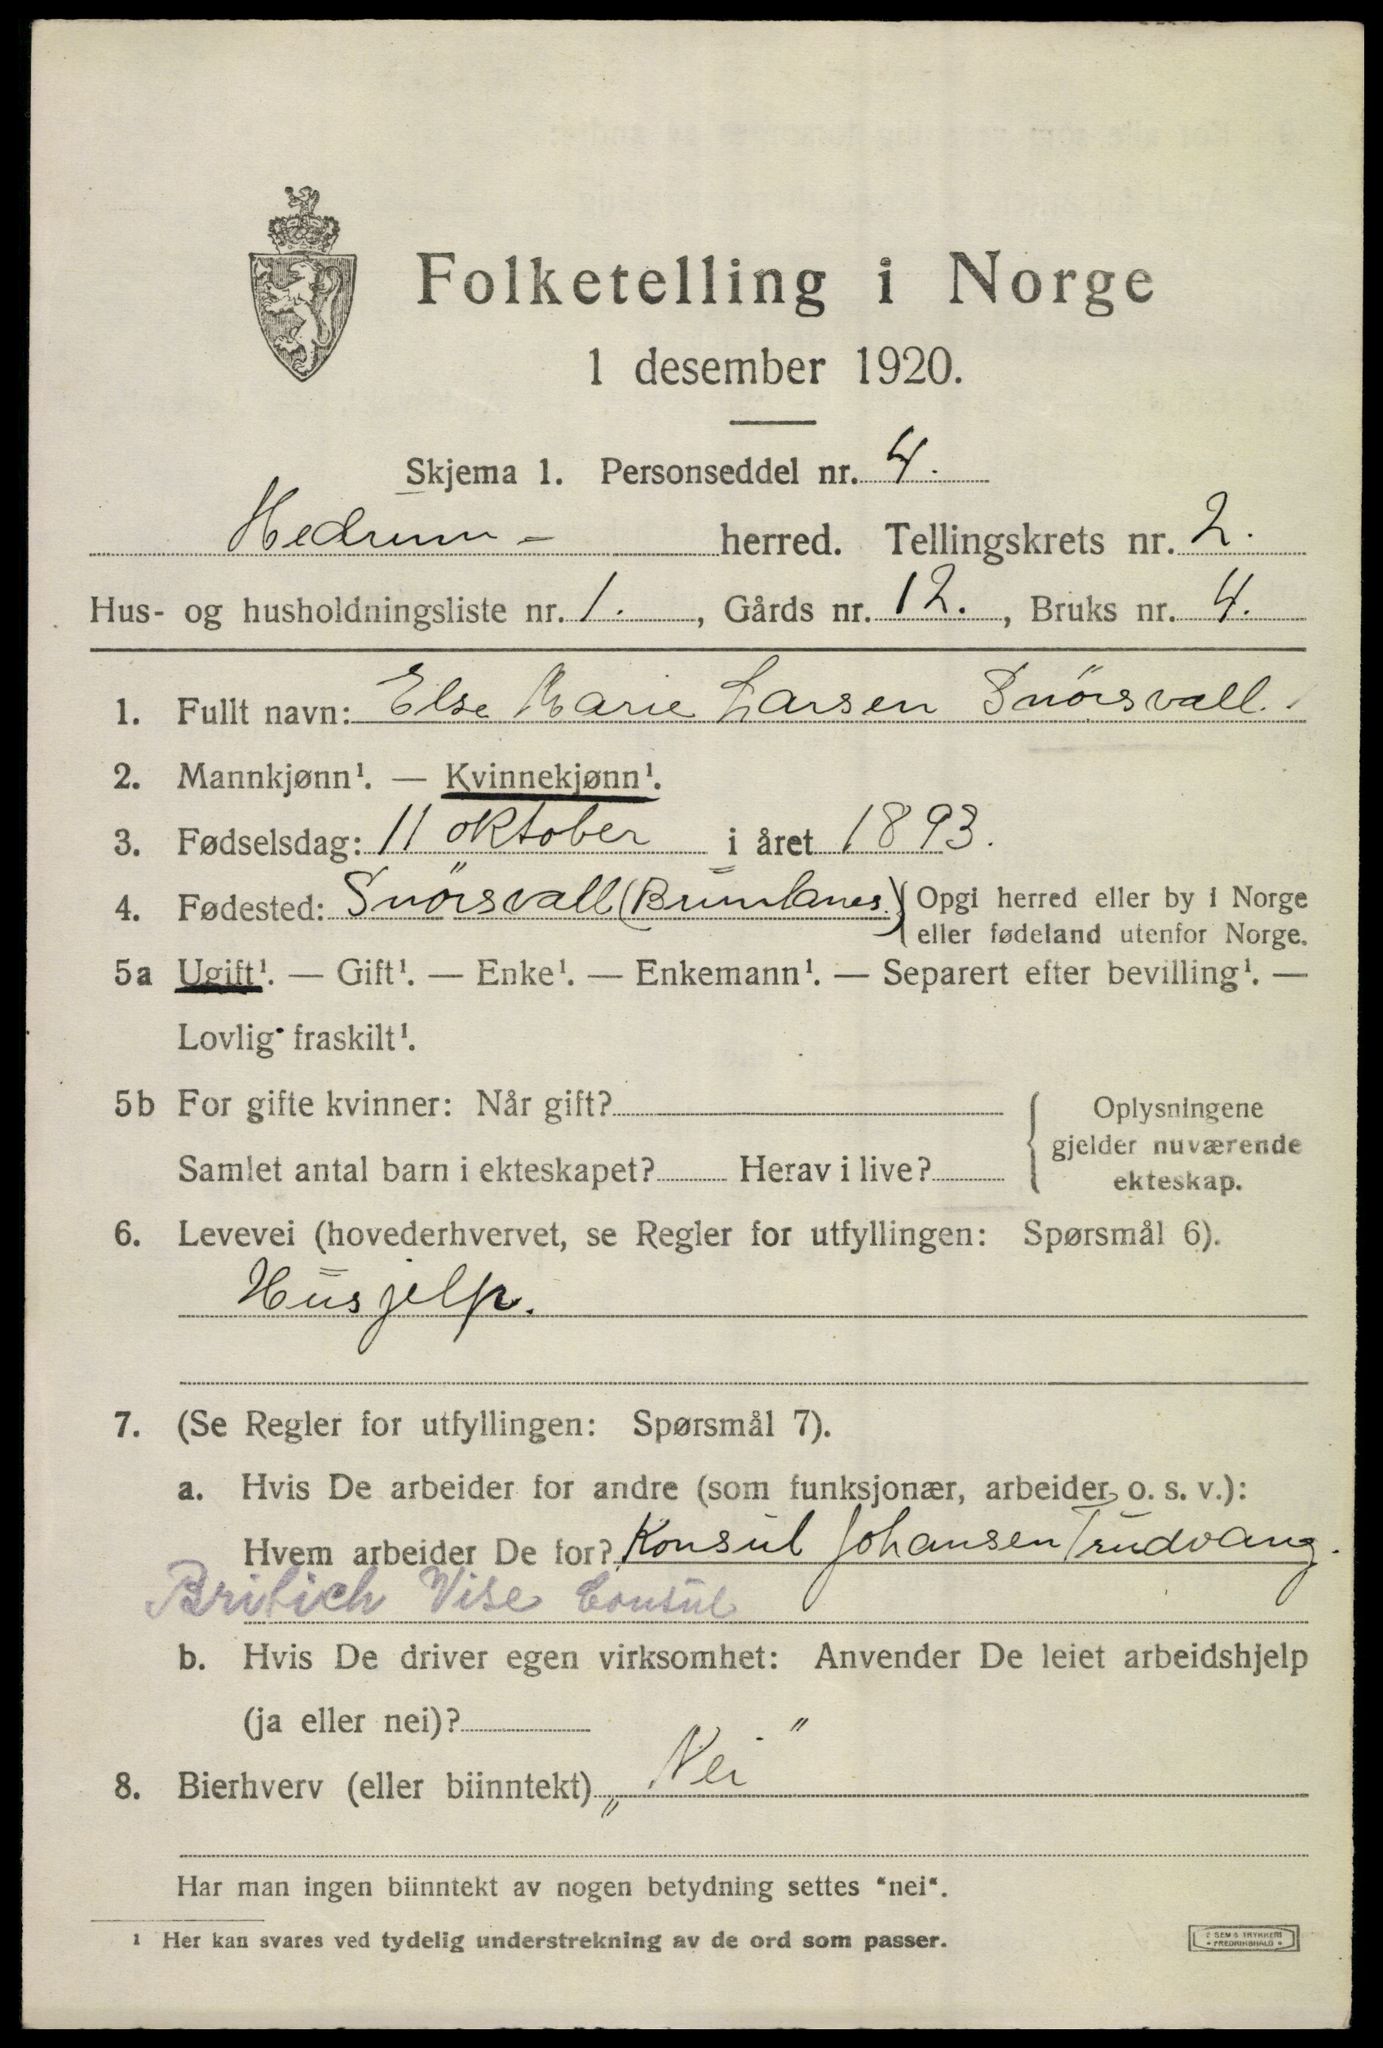 Folketelling i Norge
1 desember 1920.
Skjema 1. Personseddel nr. 4.
Hedrum – herred. Tellingskrets nr. 2.
Hus- og husholdningsliste nr. 1., Gårds nr. 12., Bruks nr. 4.
1. Fullt navn: Else Marie Larsen Snörsvall.
2. Mannkjønn¹. — Kvinnekjønn¹.
3. Fødselsdag: 11 oktober i året 1893.
4. Fødested: Snörsvall (Brunlanes.) Opgi herred eller by i Norge
eller fødeland utenfor Norge.
5a Ugift¹. — Gift¹. — Enke¹. — Enkemann¹. — Separert efter bevilling¹. —
Lovlig fraskilt¹.
5b For gifte kvinner: Når gift? Oplysningene
gjelder nuværende
Samlet antal barn i ekteskapet? Herav i live?
ekteskap.
6. Levevei (hovederhvervet, se Regler for utfyllingen: Spørsmål 6).
Husjelp.
7. (Se Regler for utfyllingen: Spørsmål 7).
a. Hvis De arbeider for andre (som funksjonær, arbeider o. s. v.):
Hvem arbeider De for? Konsul Johansen Trudvang.
Britich Vise Consul
b. Hvis De driver egen virksomhet: Anvender De leiet arbeidshjelp
(ja eller nei)?
8. Bierhverv (eller biinntekt) „Nei"
Har man ingen biinntekt av nogen betydning settes "nei".
¹ Her kan svares ved tydelig understrekning av de ord som passer.
SEM & TRYKKERI
FREDRIKSHALD